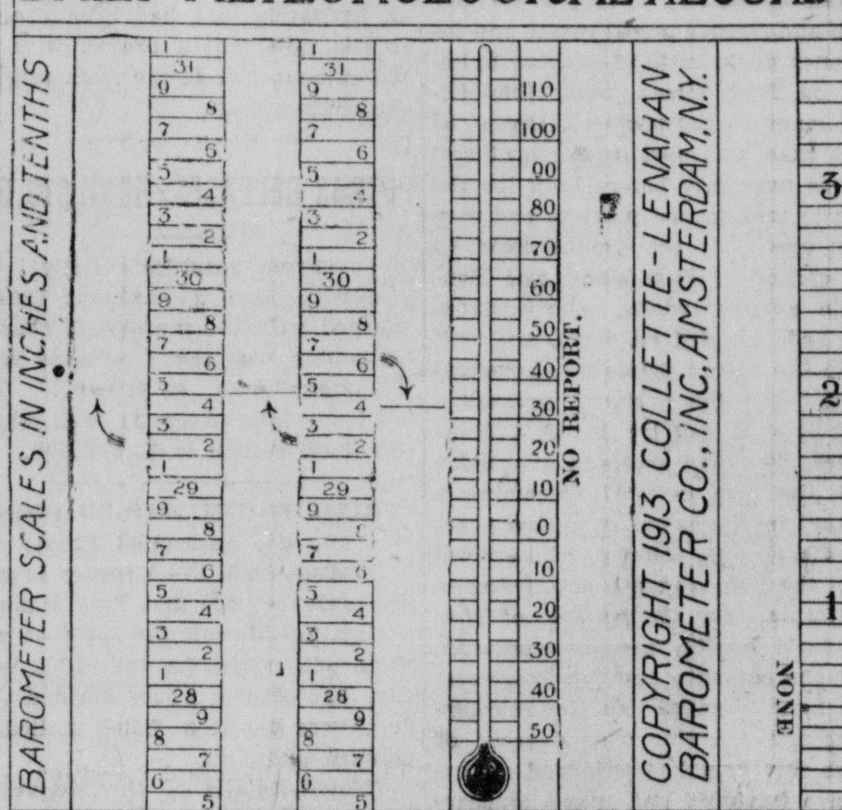 BAROMETER SCALES IN INCHES AND TENTHS
1
31
9
8
7
6
5
4
3
2
1
30
9
8
7
6
5
4
3
2
1
29
9
8
7
6
5
4
3
2
1
28
9
8
7
6
5
1
31
9
8
7
6
5
4
3
2
1
30
9
8
7
6
5
4
3
2
1
29
9
7
6
5
4
3
2
1
28
9
8
7
6
5
110
100
90
80
70
60
50
40
30
20
10
0
10
20
30
40
50
NO REPORT.
COPYRIGHT 1913 COLLETTE-LENAHAN
BAROMETER CO., INC, AMSTERDAM, N.Y.
NONE
1
2
3